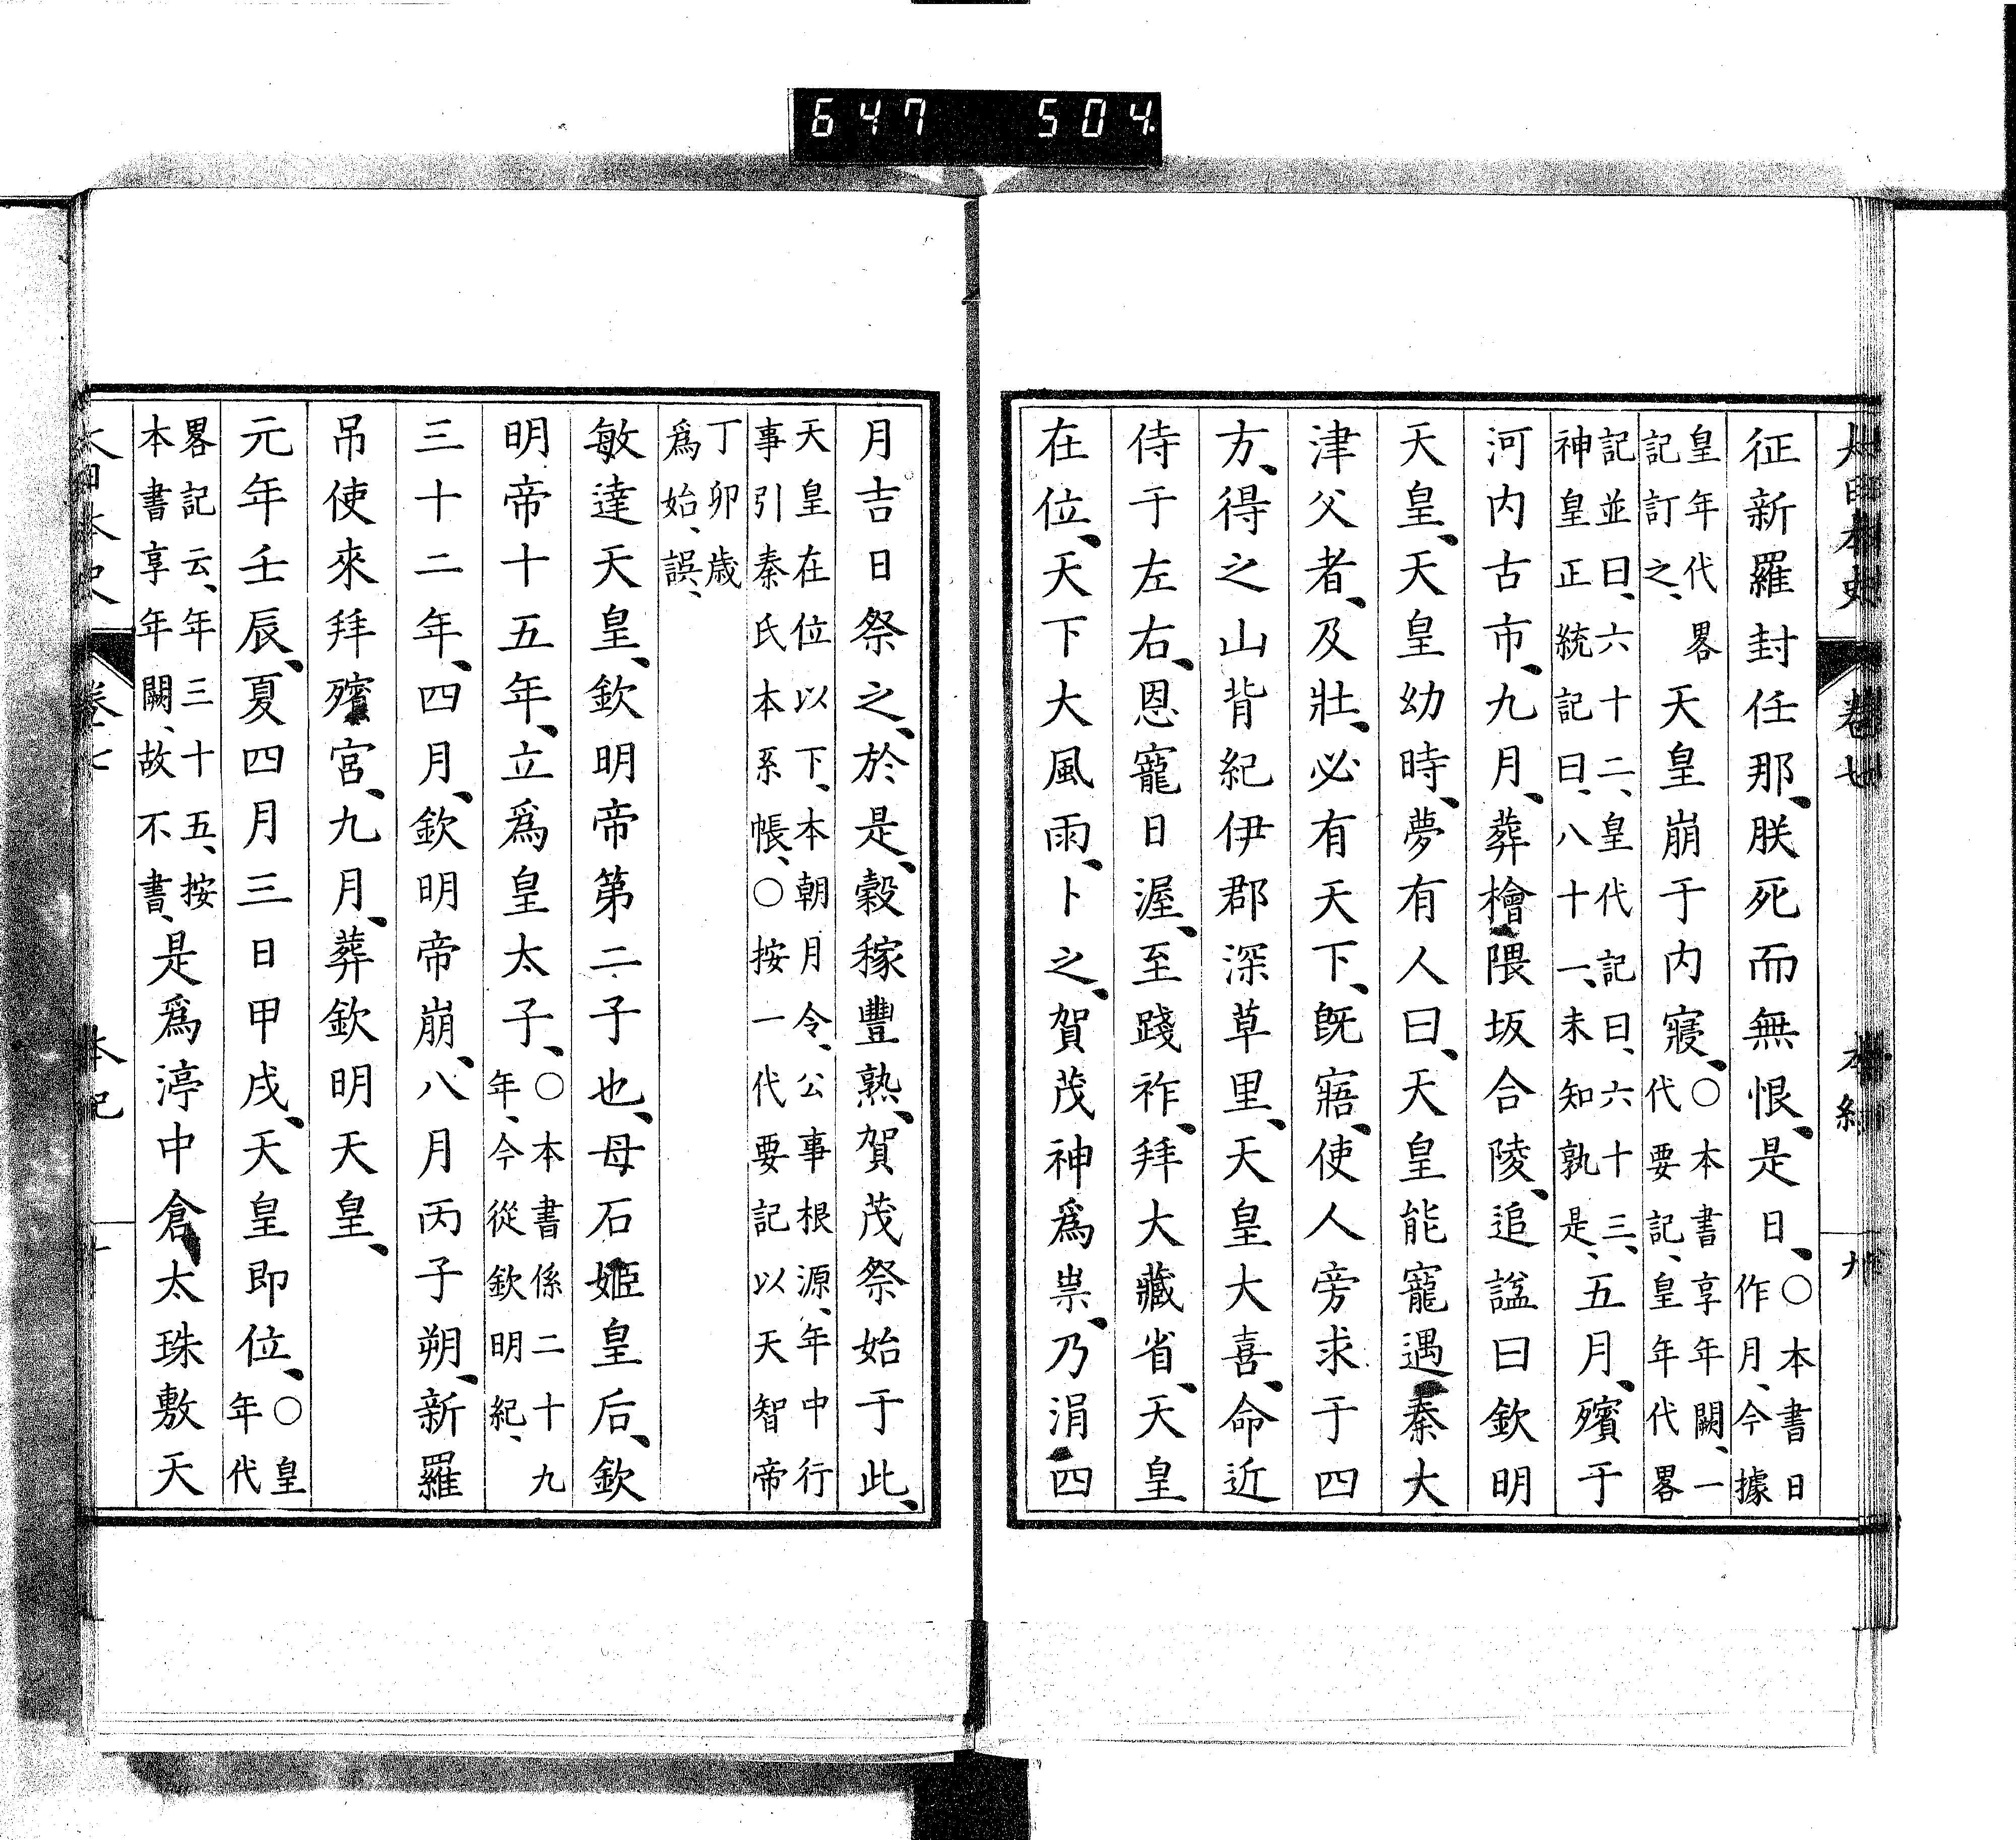 647 504
大日本史 卷七 本紀 九
征新羅封任那、朕死而無恨、是日、〇本書日作月、今據
皇年代畧記訂之、天皇崩于内寢、〇本書享年闕、一代要記、皇年代畧
記並曰、六十二、皇代記曰、六十三、神皇正統記曰、八十一、未知孰是、五月、殯于
河内古市、九月、葬檜隈坂合陵、追諡曰欽明
天皇、天皇幼時、夢有人曰、天皇能寵遇秦大
津父者、及壯、必有天下、既寤、使人旁求于四
方、得之山背紀伊郡深草里、天皇大喜、命近
侍于左右、恩寵日渥、至踐祚、拜大藏省、天皇
在位、天下大風雨、卜之、賀茂神爲祟、乃涓四
月吉日祭之、於是、穀稼豐熟、賀茂祭始于此、
天皇在位以下、本朝月令、公事根源、年中行事引秦氏本系帳、〇按一代要記以天智帝
丁卯歳爲始、誤、
敏達天皇、欽明帝第二子也、母石姫皇后、欽
明帝十五年、立爲皇太子、〇本書係二十九年、今從欽明紀、
三十二年、四月、欽明帝崩、八月丙子朔、新羅
吊使來拜殯宮、九月、葬欽明天皇、
元年壬辰、夏四月三日甲戌、天皇即位、〇皇年代
畧記云、年三十五、按本書享年闕、故不書、是爲渟中倉太珠敷天
大日本史 卷七 本紀 十